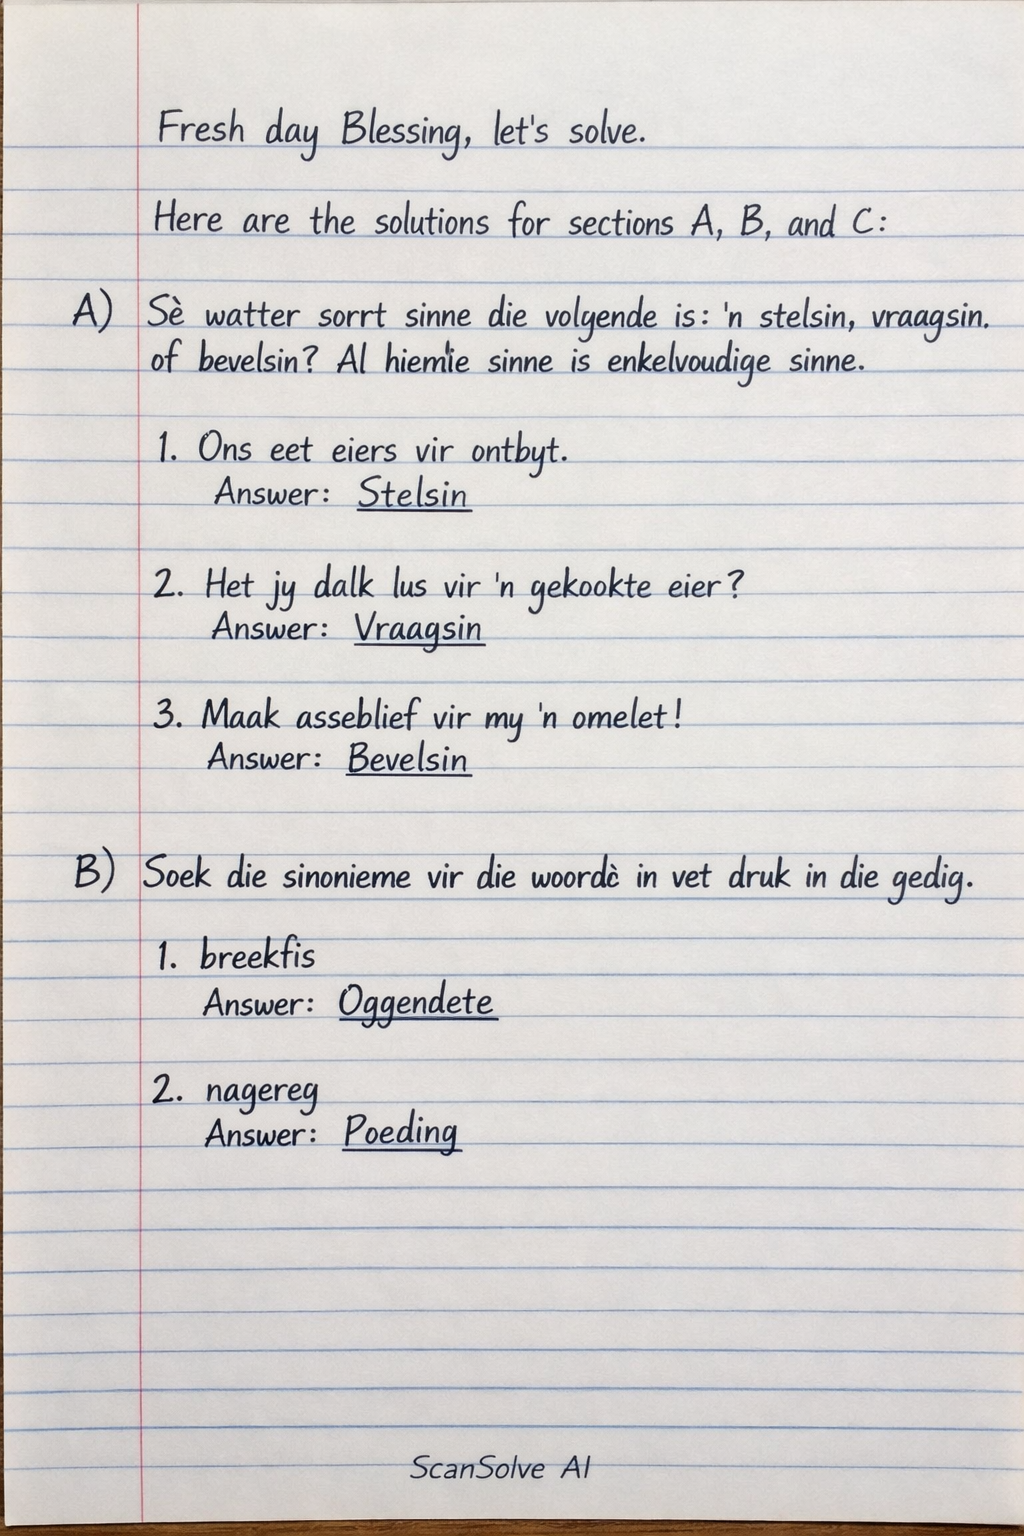 Fresh day Blessing, let's solve.
Here are the solutions for sections A, B, and C:
A) Sè watter sorrt sinne die volgende is: 'n stelsin, vraagsin.
of bevelsin? Al hiemie sinne is enkelvoudige sinne.
1. Ons eet eiers vir ontbyt.
Answer: Stelsin
2. Het jy dalk lus vir 'n gekookte eier?
Answer: Vraagsin
3. Maak asseblief vir my 'n omelet!
Answer: Bevelsin
B) Soek die sinonieme vir die woordè in vet druk in die gedig.
1. breekfis
Answer: Oggendete
2. nagereg
Answer: Poeding
ScanSolve AI